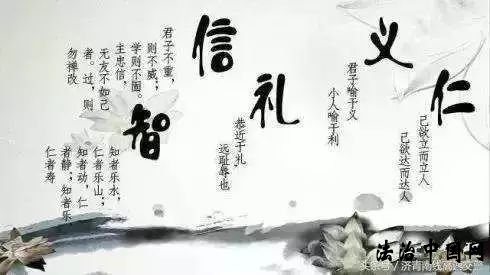 仁
己欲立而立人
己欲达而达人
义
君子喻于义
小人喻于利
礼
恭近于礼
远耻辱也
信
君子不重，
则不威；
学则不固。
主忠信，
无友不如己
者。过，则
勿禅改
智
知者乐水，
仁者乐山；
知者动，仁
者静；知者乐
仁者寿
法治中国网
头条号/济青南线高速交警